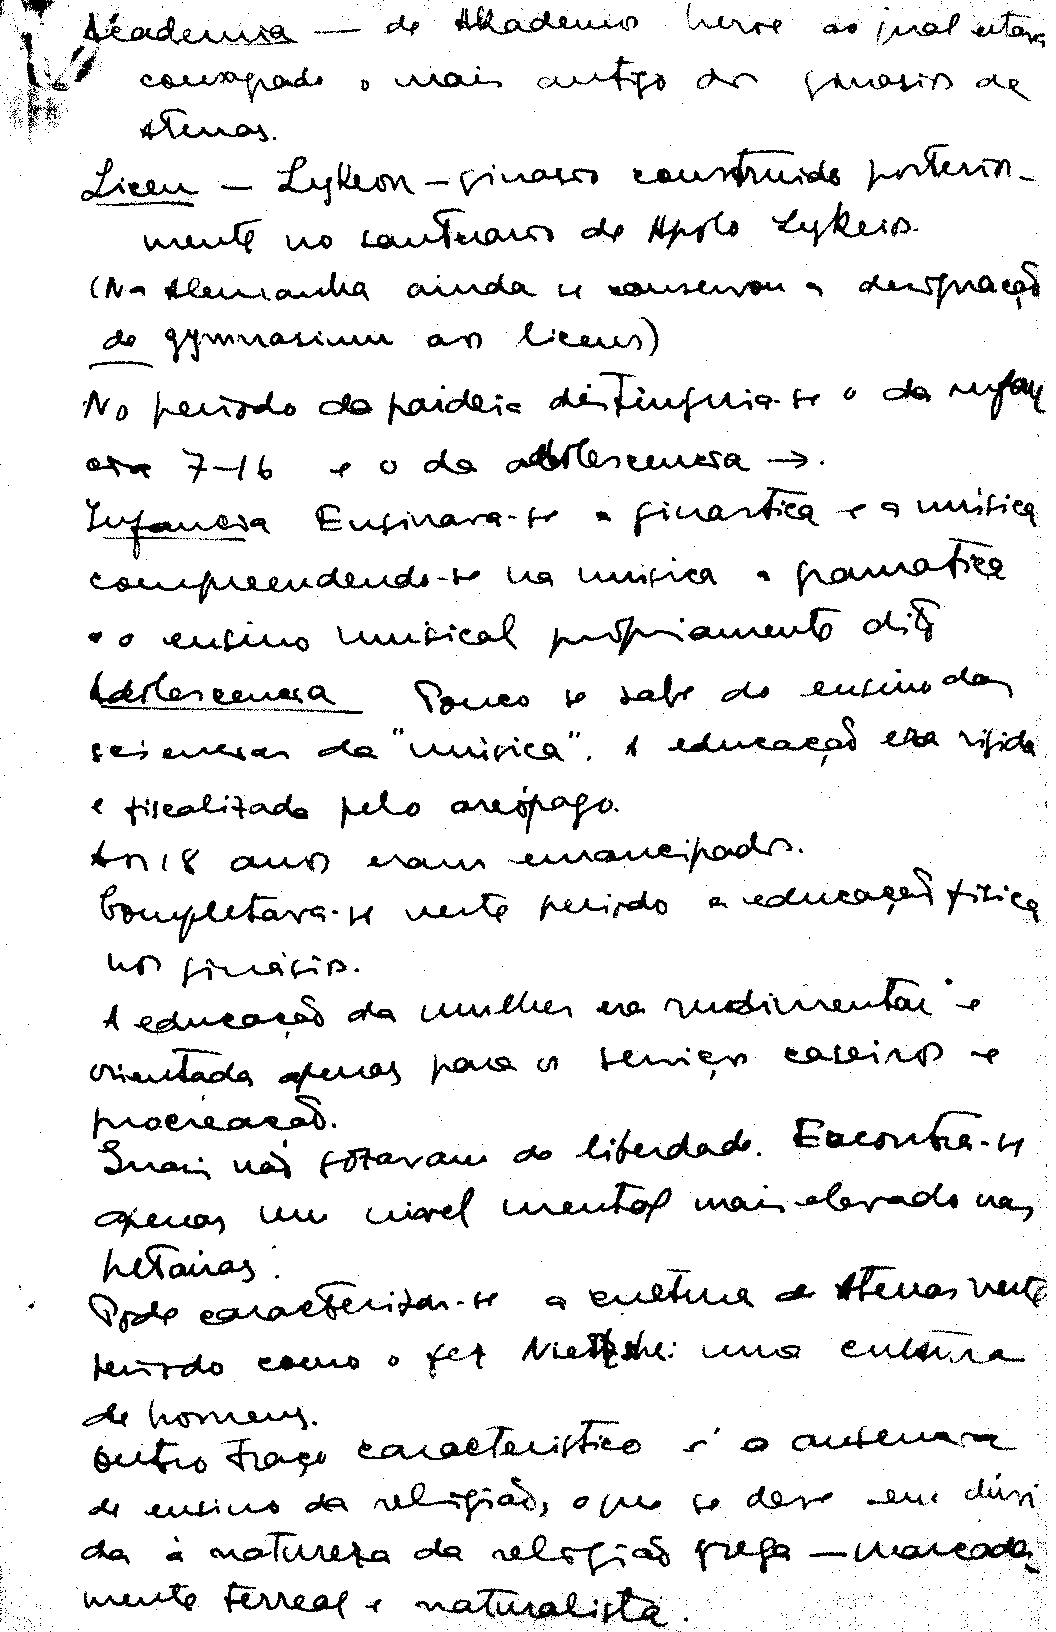 Academia — de Akademos heroe ao qual estava
consagrado o mais antigo dos ginasios de
Atenas.
Liceu — Lykeon — ginasio construido posterior-
mente no santuario de Apolo Lykeios.
(Na Alemanha ainda se conservou a designação
de gymnasium aos liceus)
No periodo da paideia distinguia-se o da infan
cia 7-16 e o da adolescencia →.
Infancia Ensinava-se a ginastica e a música
compreendendo-se na musica a gramatica
e o ensino musical propriamente dito
Adolescencia Pouco se sabe do ensino das
sciencias da "música". A educação era rigida
e fiscalizada pelo areópago.
Aos 18 anos eram emancipados.
Completava-se neste periodo a educação física
nos ginásios.
A educação da mulher era rudimentar e
orientada apenas para os serviços caseiros e
procreação.
Quasi não gozavam de liberdade. Encontra-se
apenas um nivel mental mais elevado nas
hetairas.
Pode caracterizar-se a cultura de Atenas neste
periodo como o fez Nietzshe: uma cultura
de homens.
Outro traço caracteristico é a ausencia
de ensino da religião, o que se deve em dúvi
da à natureza da religião grega — marcada-
mente terreal e naturalista.